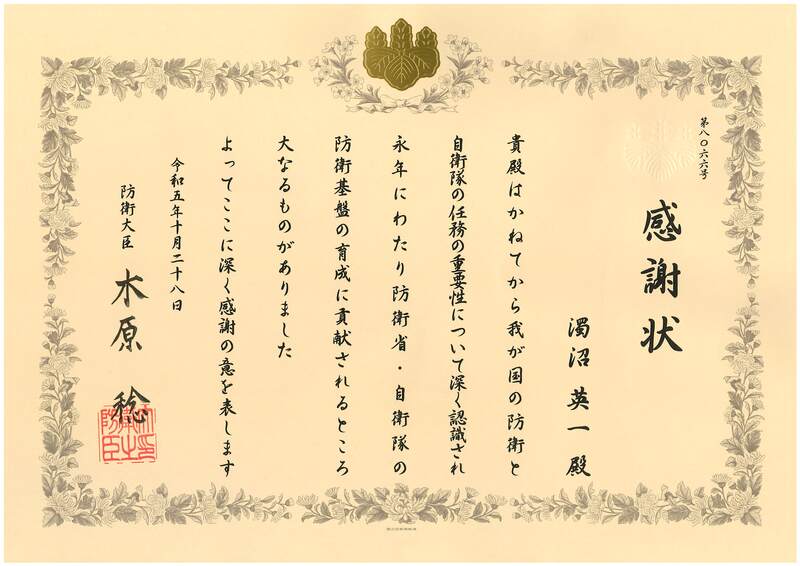 第八〇六六号
感謝状
濁沼英一殿
貴殿はかねてから我が国の防衛と
自衛隊の任務の重要性について深く認識され
永年にわたり防衛省・自衛隊の
防衛基盤の育成に貢献されるところ
大なるものがありました
よってここに深く感謝の意を表します
令和五年十月二十八日
防衛大臣 木原 稔